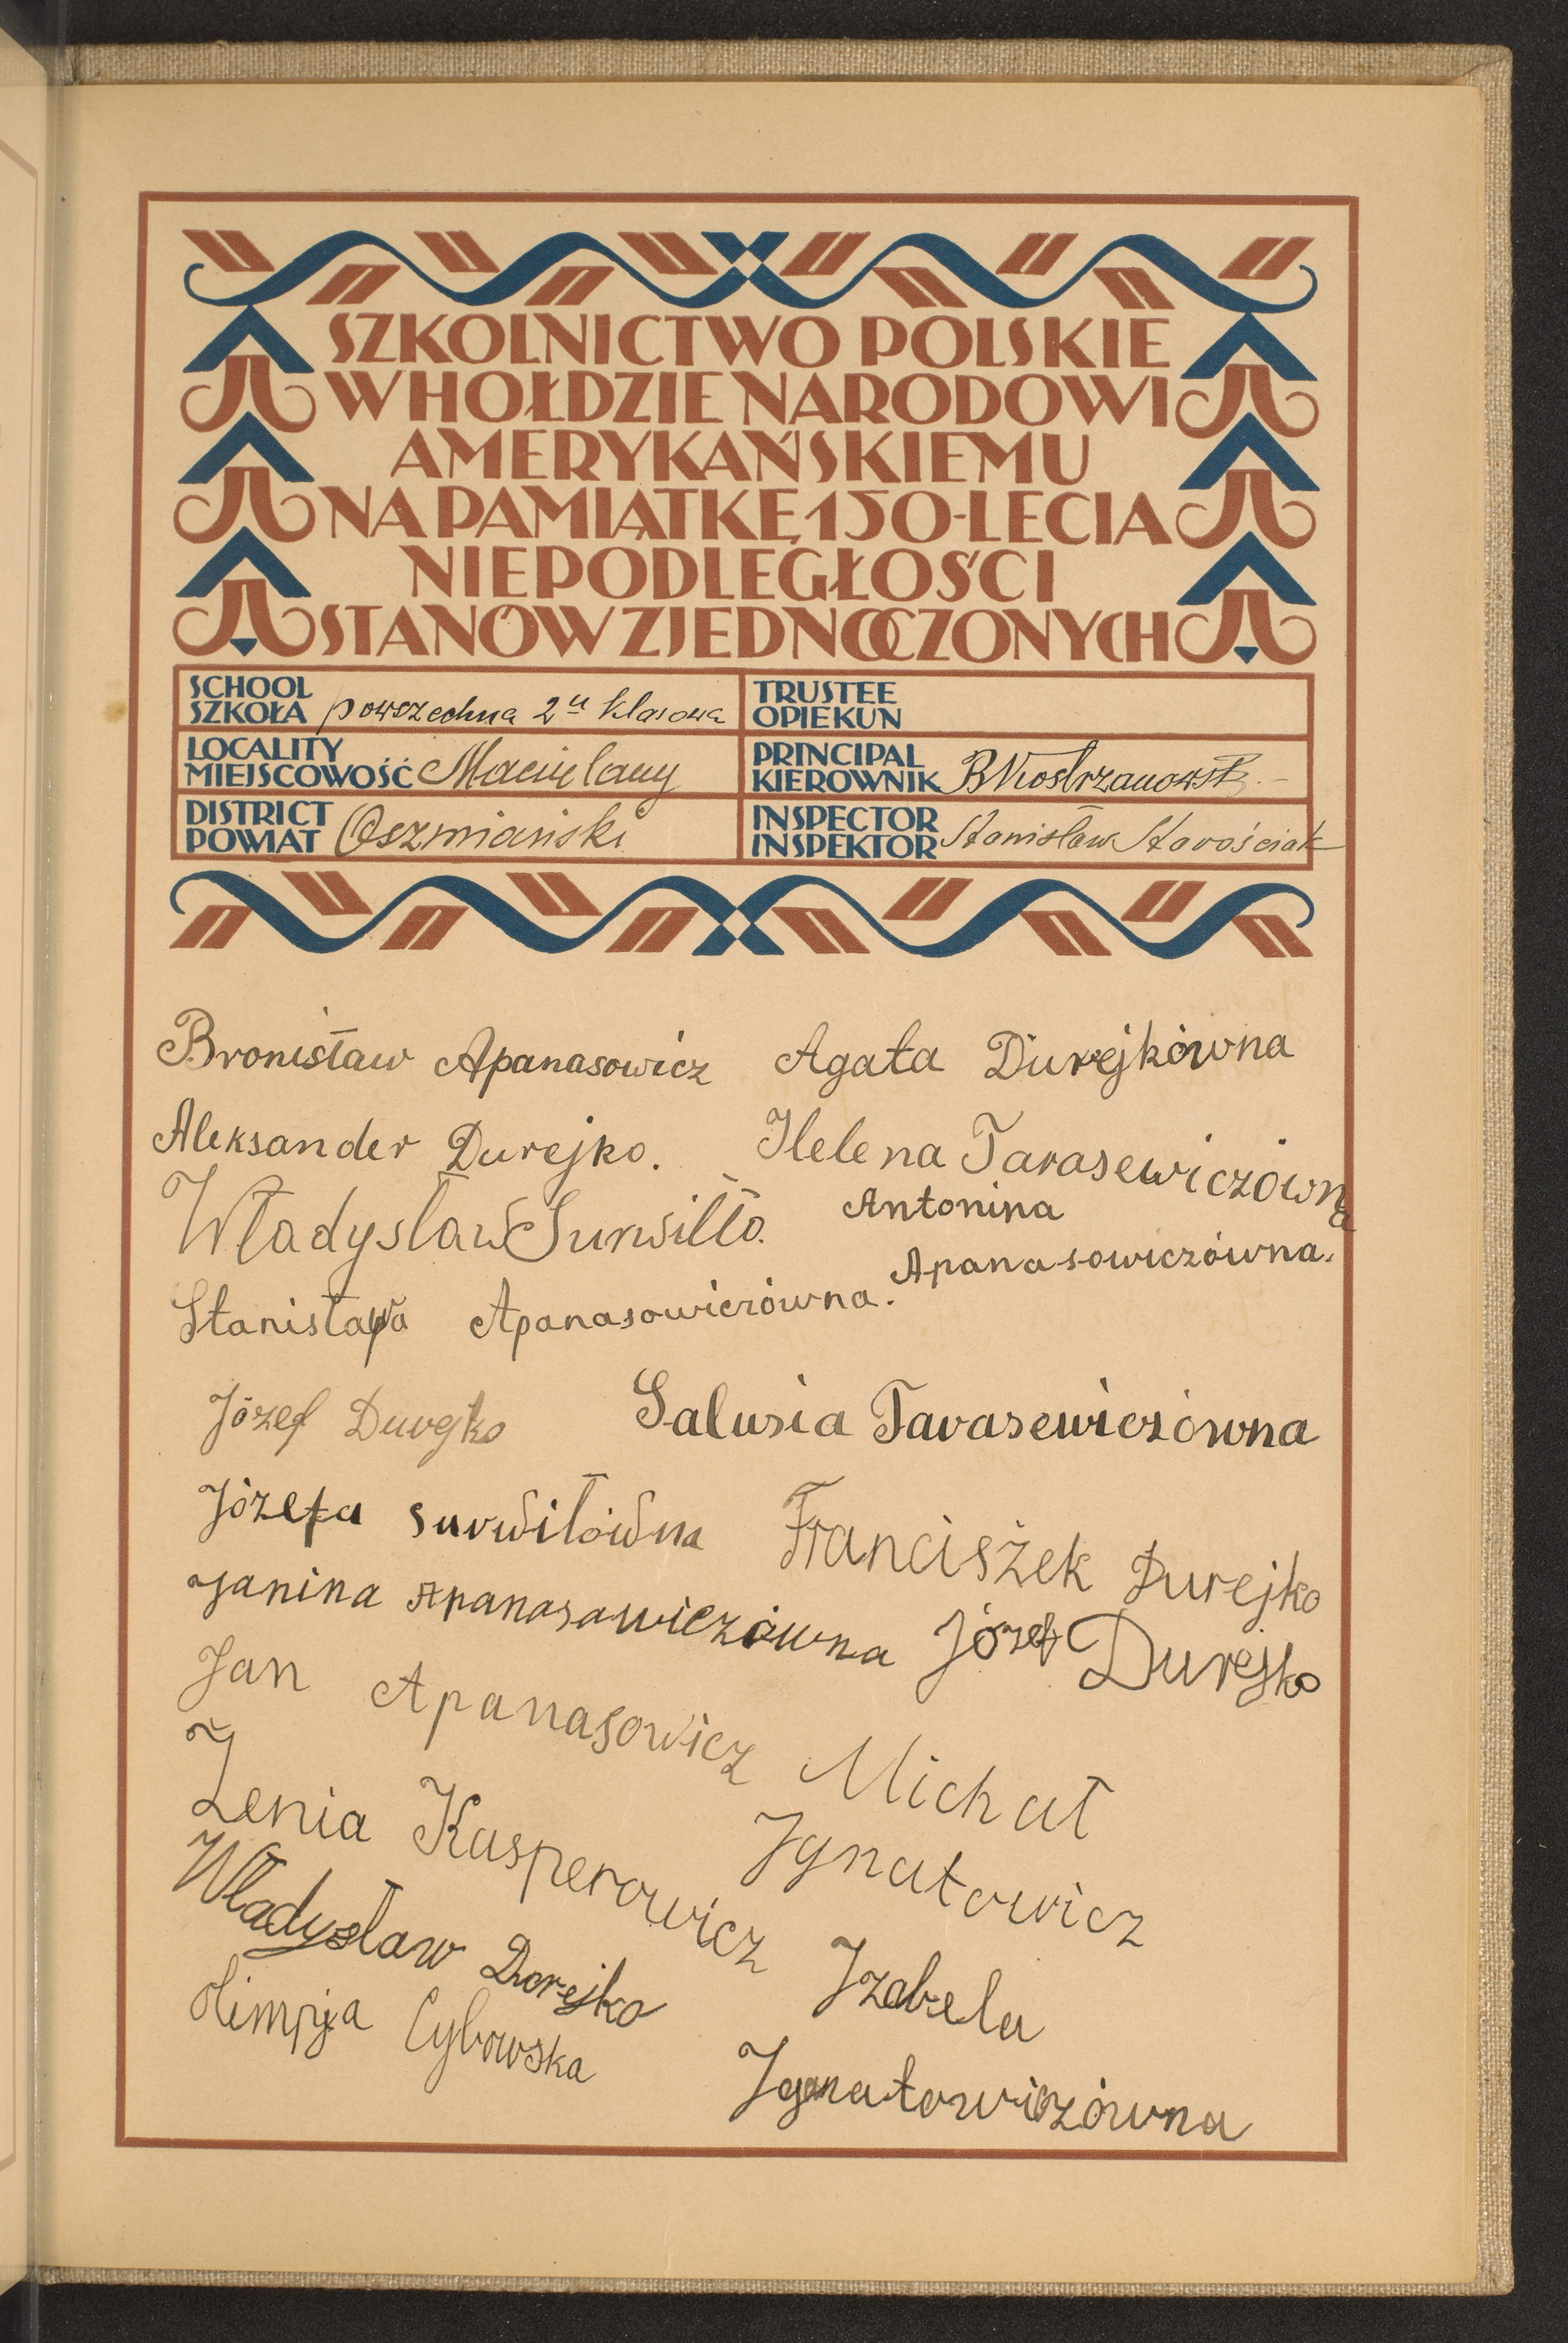 SZKOLNICTWO POLSKIE
W HOŁDZIE NARODOWI
AMERYKAŃSKIEMU
NA PAMIĄTKĘ 150-LECIA
NIEPODLEGŁOŚCI
STANÓW ZJEDNOCZONYCH
SCHOOL
SZKOŁA powszechna 2u klasowa
TRUSTEE
OPIEKUN
LOCALITY
MIEJSCOWOŚĆ
PRINCIPAL
KIEROWNIK
DISTRICT
POWIAT Oszmiański
INSPECTOR
INSPEKTOR Stanisław Starościak
Bronisław Apanasowicz Agata Durejkówna
Aleksander Durejko. Helena Tarasewiczówna
Władysław Surwiłło. Antonina
Apanasowiczówna.
Stanisława Apanasowiczówna.
Józef Durejko Salusia Tarasewiczówna
Józefa Surwiłówna Franciszek Durejko
Janina Apanasawiczówna Józef Durejko
Jan Apanasowicz Michał
Jgnatowicz
Zenia Kasperowicz Jzabela
Jgnatowiczówna
Władysław Dorejko
Olimpja Cybowska